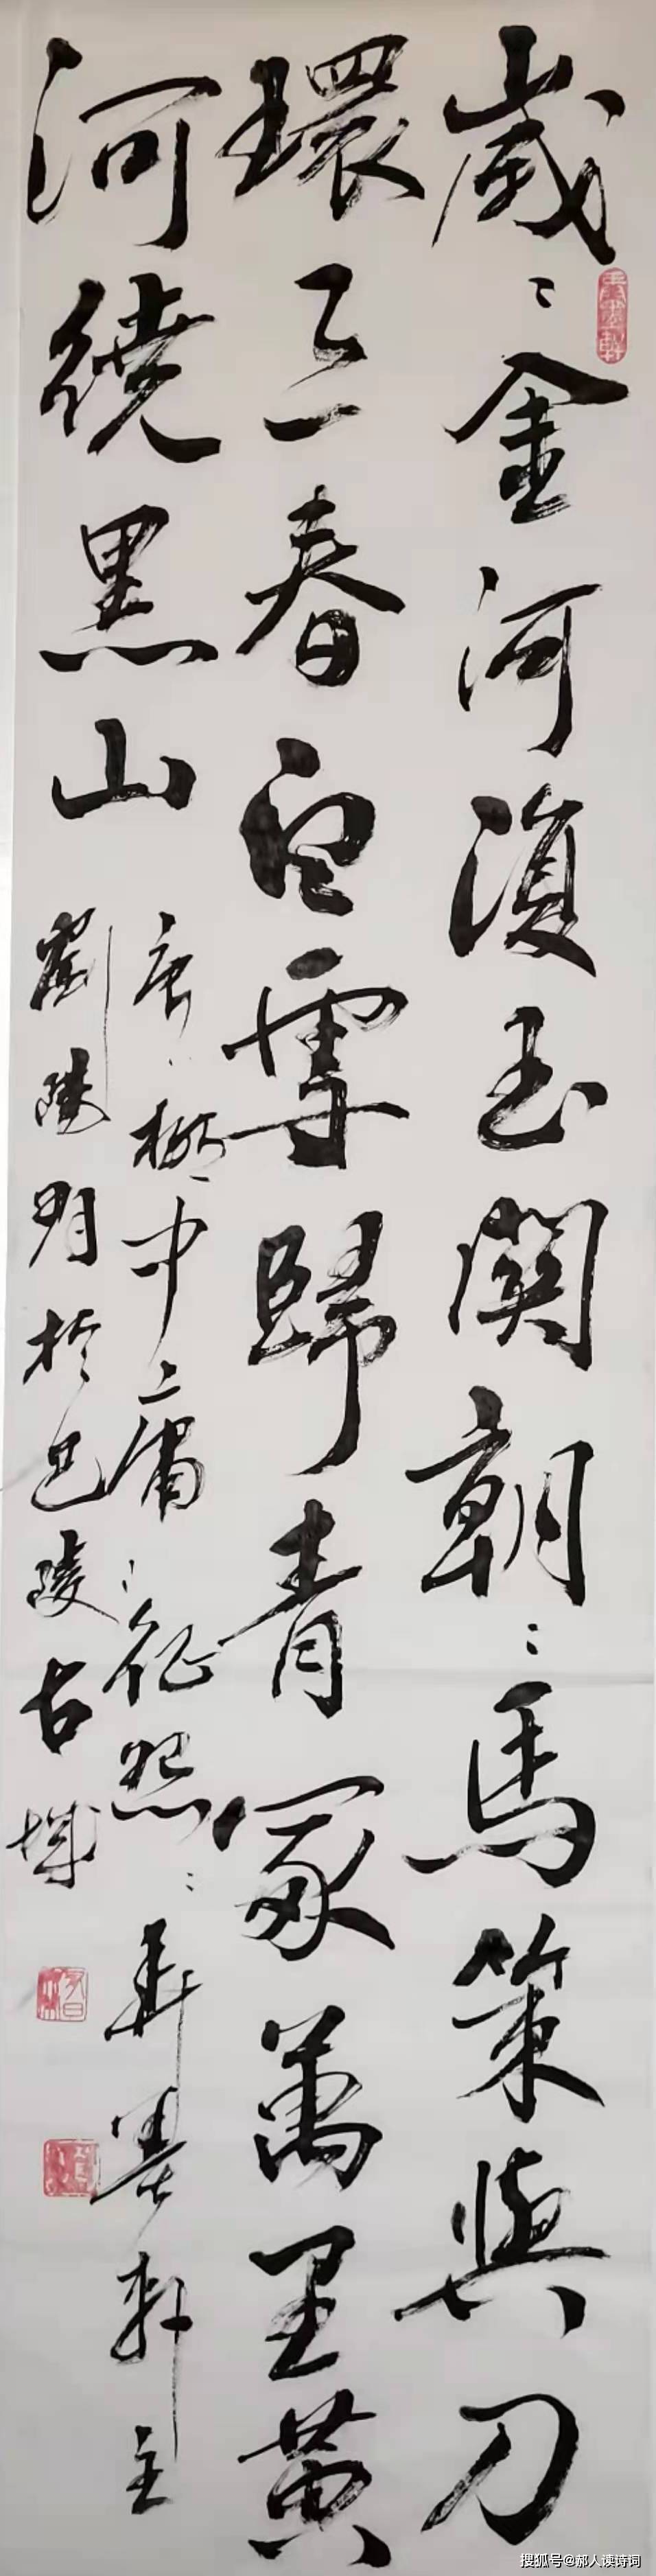 歲〻金河復玉關朝〻馬策與刀
環三春白雪歸青冢萬里黃
河繞黑山
唐 柳中庸 征怨 弄墨軒主
劉陽明於巴陵古城
搜狐号@郝人读诗词